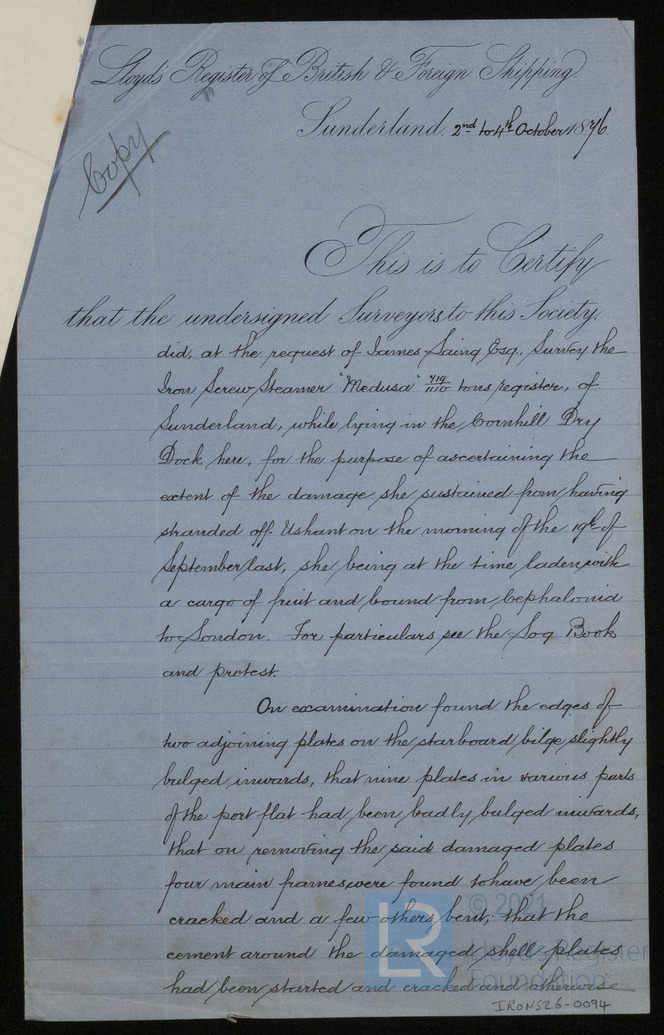 Lloyd's Register of British & Foreign Shipping.
Sunderland. 2nd to 4th October 1876.
Copy
This is to Certify
that the undersigned Surveyors to this Society,
did, at the request of James Laing Esq. Survey the
Iron Screw Steamer "Medusa" 719/1110 tons register, of
Sunderland, while lying in the Cornhill Dry
Dock here, for the purpose of ascertaining the
extent of the damage she sustained from having
stranded off Ushant on the morning of the 19th of
September last, she being at the time laden with
a cargo of fruit and bound from Cephalonia
to London. For particulars see the Log Book
and protest.
On examination found the edges of
two adjoining plates on the starboard bilge slightly
bulged inwards, that nine plates in various parts
of the port flat had been badly bulged inwards,
that on removing the said damaged plates
four main frames were found to have been
cracked and a few others bent, that the
cement around the damaged shell plates
had been started and cracked and otherwise
© 2021
LR
Lloyd's Register
Foundation
IRONS26-0094